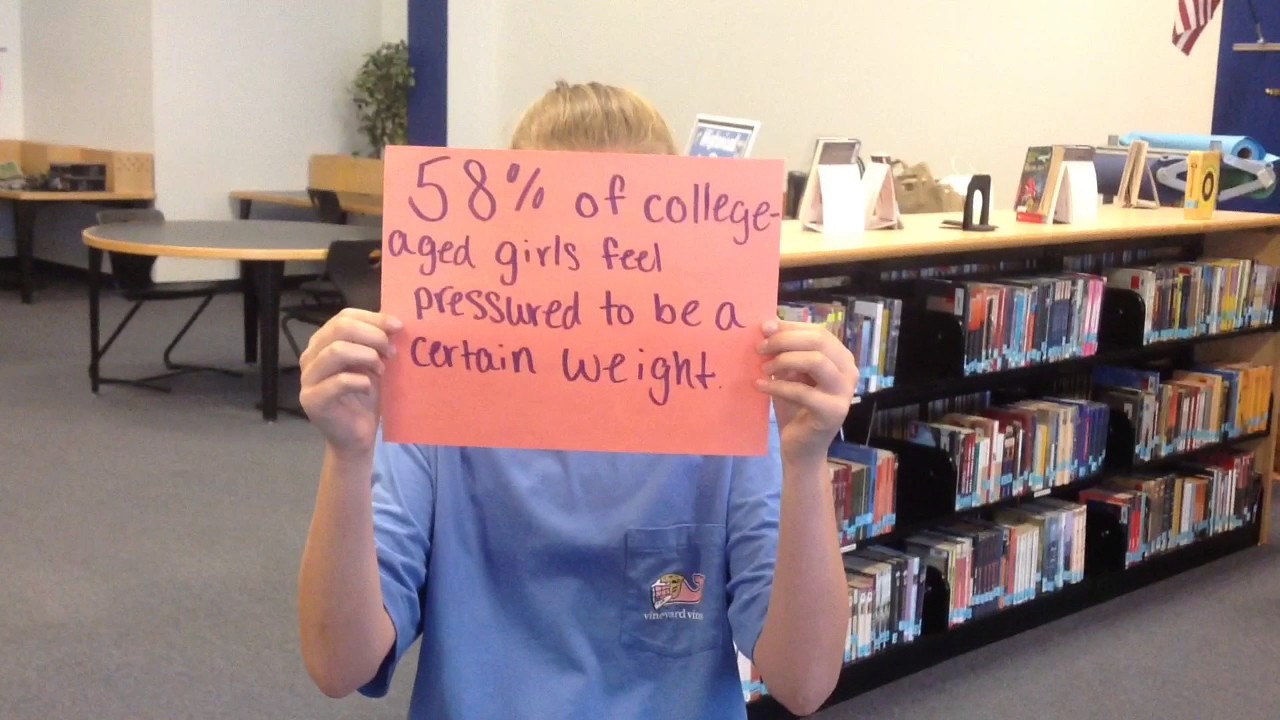 58% of college-
aged girls feel
pressured to be a
certain weight.
vineyard vines